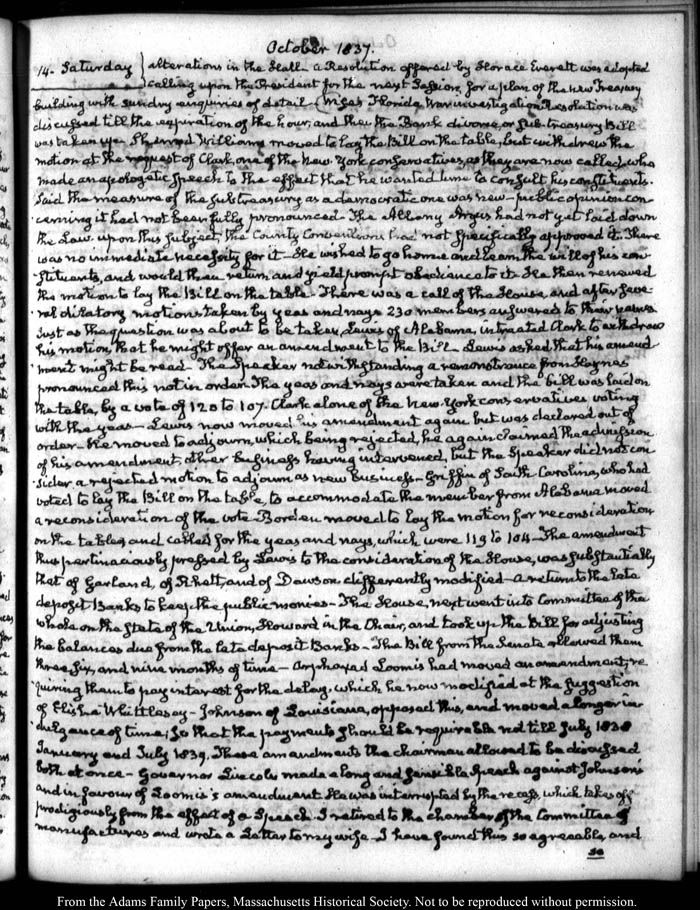 October 1837.
14. Saturday } alterations in the Hall. a Resolution offered by Horace Everett was adopted
calling upon the President for the next Session, for a plan of the new Treasury
building with sundry enquiries of detail — Wise's Florida War investigation Resolution was
discussed till the expiration of the hour, and then the Bank divorce, or Sub-treasury Bill
was taken up. Sherrod Williams moved to lay the Bill on the table, but withdrew the
motion at the request of Clark, one of the New York conservatives, as they are now called, who
made an apologetic Speech to the effect that he wanted time to consult his constituents.
Said the measure of the Subtreasury as a democratic one was new — public opinion con-
cerning it had not been fully pronounced — The Albany Argus had not yet laid down
the Law upon this subject, the County Conventions had not specifically approved it. There
was no immediate necessity for it — He wished to go home and learn the will of his con-
stituents, and would then return and yield prompt obedience to it. He then renewed
the motion to lay the Bill on the table — There was a call of the House, and after seve-
ral dilatory motions taken by yeas and nays 230 members answered to their names
Just as the question was about to be taken, Lewis of Alabama, intreated Clark to withdraw
his motion, that he might offer an amendment to the Bill — Lewis asked that his amend
ment might be read — The Speaker notwithstanding a remonstrance from Haynes
pronounced this not in order. The yeas and nays were taken and the bill was laid on
the table, by a vote of 120 to 107. Clark alone of the New-York conservatives voting
with the yeas — Lewis now moved his amendment again but was declared out of
order — He moved to adjourn, which being rejected, he again claimed the admission
of his amendment, other business having intervened, but the Speaker did not con
sider a rejected motion to adjourn as new business — Griffin of South Carolina, who had
voted to lay the Bill on the table, to accommodate the member from Alabama moved
a reconsideration of the vote Borden moved to lay the motion for reconsideration
on the table, and called for the yeas and nays, which were 119 to 104 — The amendment
thus pertinaciously pressed by Lewis to the consideration of the House, was substantially
that of Garland, of Rhett, and of Dawson differently modified — a return to the late
deposit Banks to keep the public monies — The House, next went into Committee of the
whole on the state of the Union, Howard in the Chair, and took up the Bill for adjusting
the balances due from the late deposit Banks — The Bill from the Senate allowed them
three, six, and nine months of time — Arphaxed Loomis had moved an amendment, re
quiring them to pay interest for the delay, which he now modified at the suggestion
of Elisha Whittlesey — Johnson of Louisiana, opposed this, and moved a longer in-
dulgence of time; so that the payments should be requirable not till July 1838
January and July 1839. These amendments the chairman allowed to be discussed
both at once — Governor Lincoln made a long and sensible speech against Johnson's
and in favour of Loomis's amendment He was interrupted by the recess, which takes off
prodigiously from the effect of a Speech. I retired to the chamber of the Committee of
manufactures and wrote a Letter to my wife. I have found this so agreeable, and
so
From the Adams Family Papers, Massachusetts Historical Society. Not to be reproduced without permission.